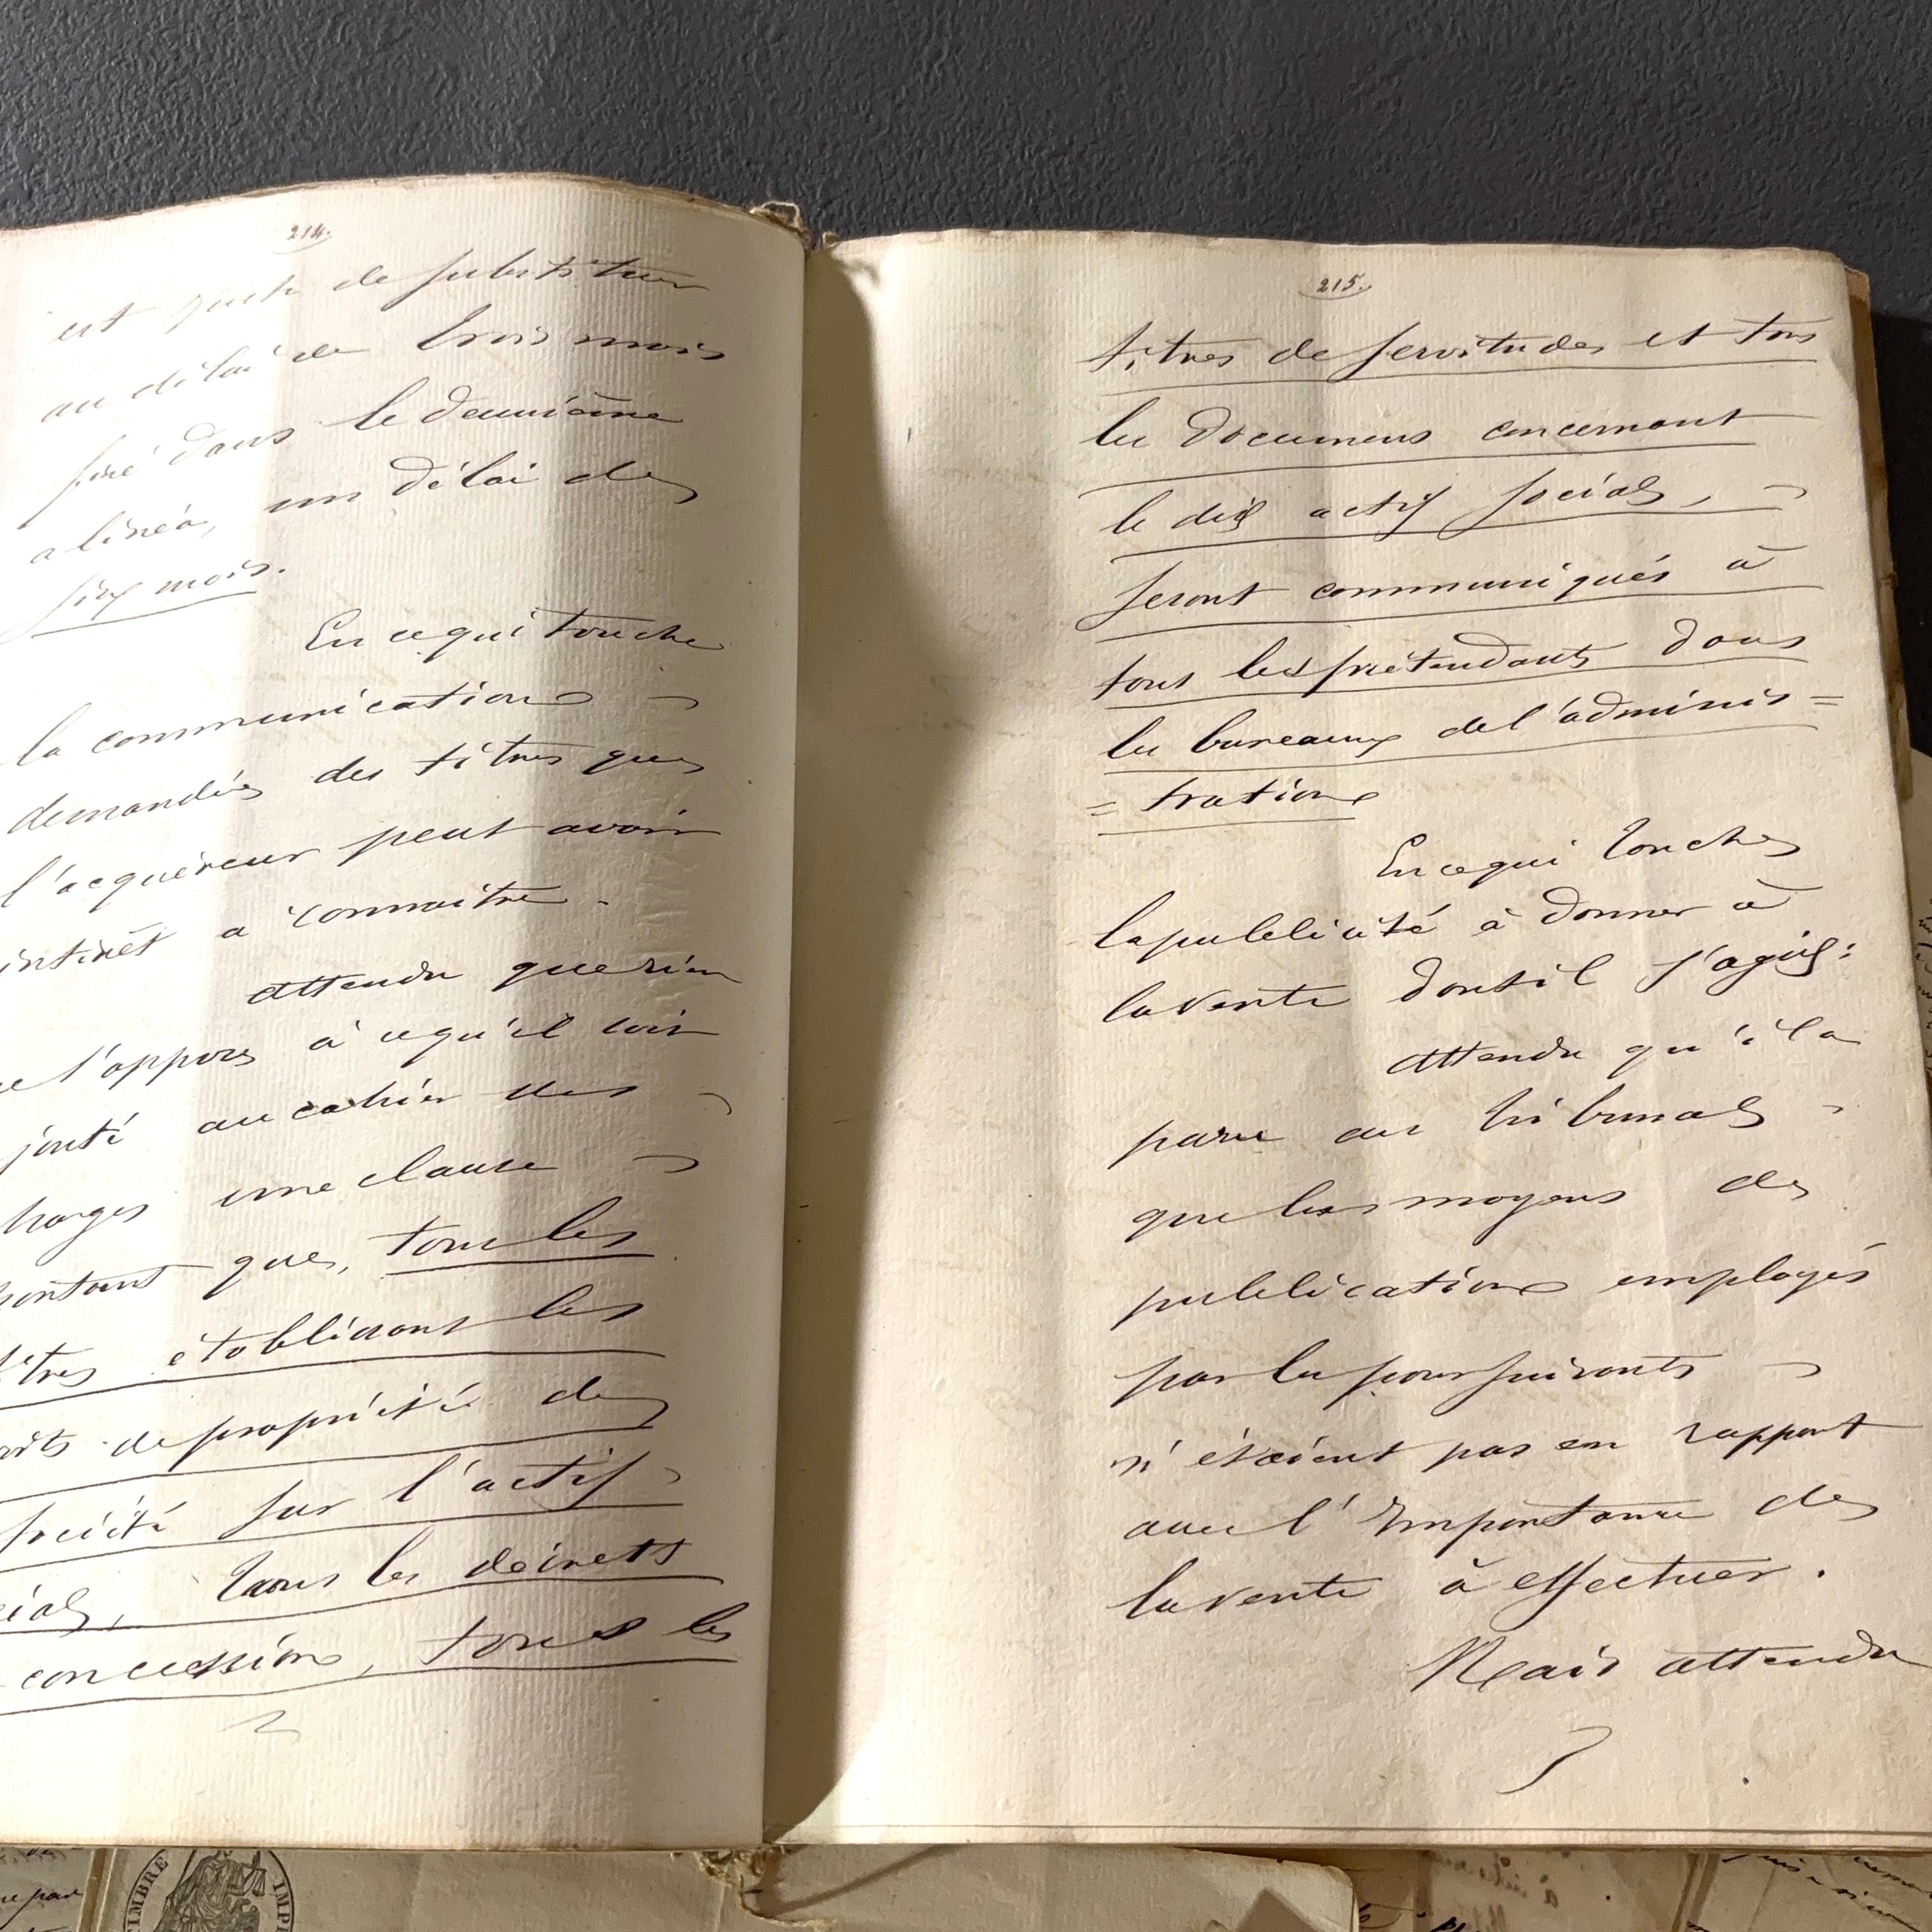 214.
est juste de substituer
au délai de trois mois
fixé dans le deuxième
alinéa, un délai de
six mois.
En ce qui touche
la communication
demandée des titres que
l'acquéreur peut avoir
intérêt à connaitre.
attendu que rien
l'oppose à ce qu'il soit
jouté au cahier des
harges une clause
portant que, tous les
titres établissant les
oits de propriété de
société sur l'actif
cial, tous les décrets
concession, tous les
215.
titres de servitudes et tous
les documens concernant
le dit actif social,
seront communiqués à
tous les prétendants dans
les bureaux de l'adminis=
=tration
En ce qui touche
la publicité à donner à
la vente dont il s'agit:
attendu qu'il a
paru au tribunal
que les moyens de
publication employés
par les poursuivants
n'étaient pas en rapport
avec l'importance de
la vente à effectuer.
Mais attendu
TIMBRE IMP